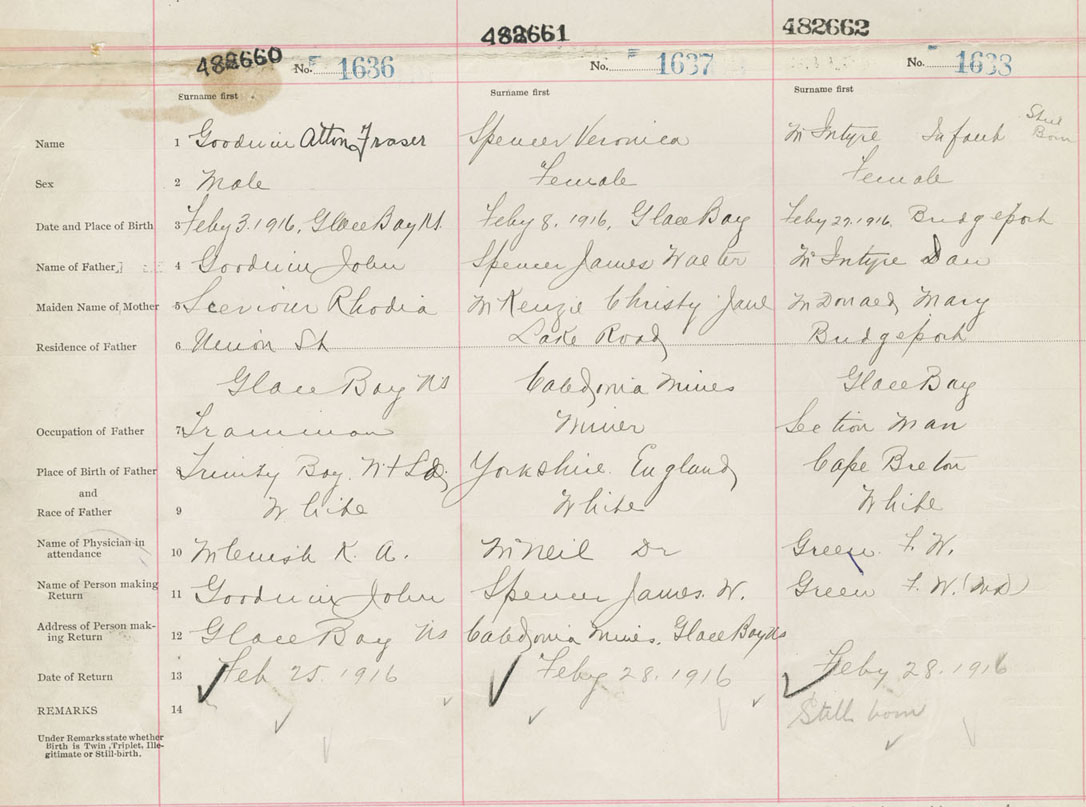 482660 482661 482662
No. 1636 No. 1637 No. 1638
Surname first Surname first Surname first
Name 1 Goodwin Atton Fraser Spencer Veronica McIntyre Infant Still Born
Sex 2 Male Female Female
Date and Place of Birth 3 Feby 3. 1916, Glace Bay NS. Feby 8. 1916, Glace Bay Feby 27. 1916, Bridgeport
Name of Father 4 Goodwin John Spencer James Walter McIntyre Dan
Maiden Name of Mother 5 Sceviour Rhodia McKenzie Christy Jane McDonald Mary
Residence of Father 6 Union St Lake Road Bridgeport
Glace Bay NS Caledonia Mines Glace Bay
Occupation of Father 7 Trammman Miner Section Man
Place of Birth of Father 8 Trinity Bay. Nfld. Yorkshire. England Cape Breton
and
Race of Father 9 White White White
Name of Physician in
attendance 10 K. A. McNeil Dr Green F. W.
Name of Person making
Return 11 Goodwin John Spencer James. W. Green F. W. (MD)
Address of Person mak-
ing Return 12 Glace Bay NS Caledonia Mines, Glace Bay NS
Date of Return 13 Feb 25. 1916 Feby 28. 1916 Feby 28. 1916
REMARKS 14 Still born
Under Remarks state whether
Birth is Twin, Triplet, Ille-
gitimate or Still-birth.